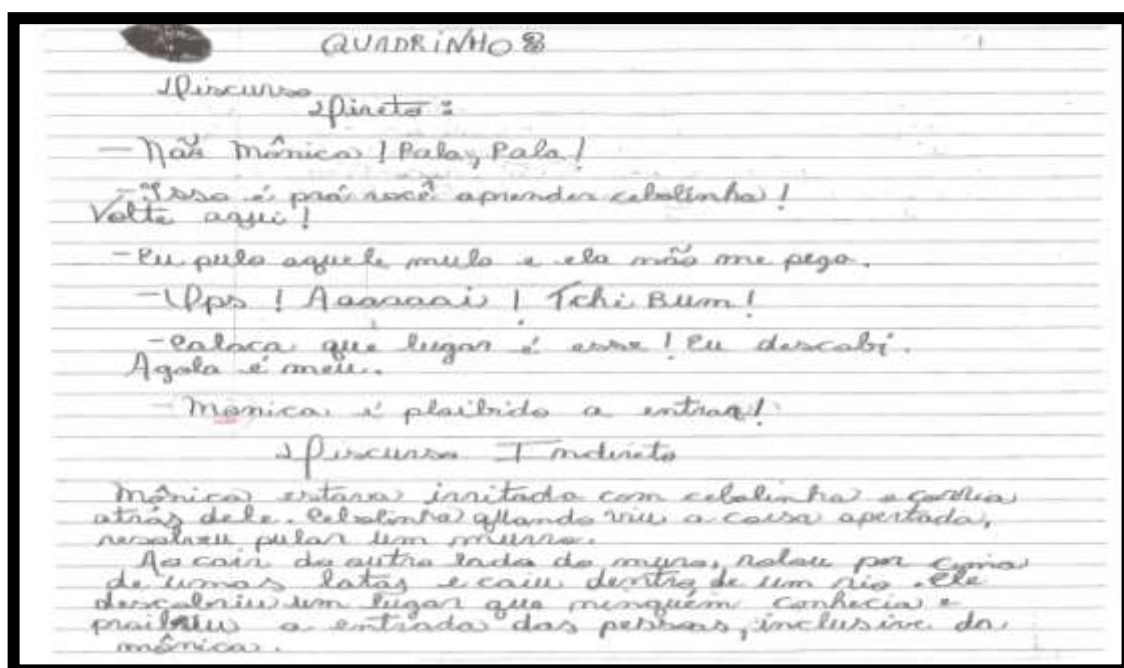 QUADRINHO 8
Discurso
Direto:
— Não Mônica! Pala, Pala!
- Isso é prá você aprender cebolinha!
Volte aqui!
- Eu pulo aquele mulo e ela não me pega.
- Upps! Aaaaaai! Tchi Bum!
- Calaca que lugar é esse! Eu descobí.
Agola é meu.
- Monica é ploibido a entrar!
Discurso Indireto
Mônica estava irritada com cebolinha e corria
atrás dele. Cebolinha quando viu a coisa apertada,
resolveu pular um murro.
Ao cair do outro lado do muro, rolou por cima
de umas latas e caiu dentro de um rio. Ele
descobriu um lugar que ninguém conhecia e
proibiu a entrada das pessoas, inclusive da
mônica.